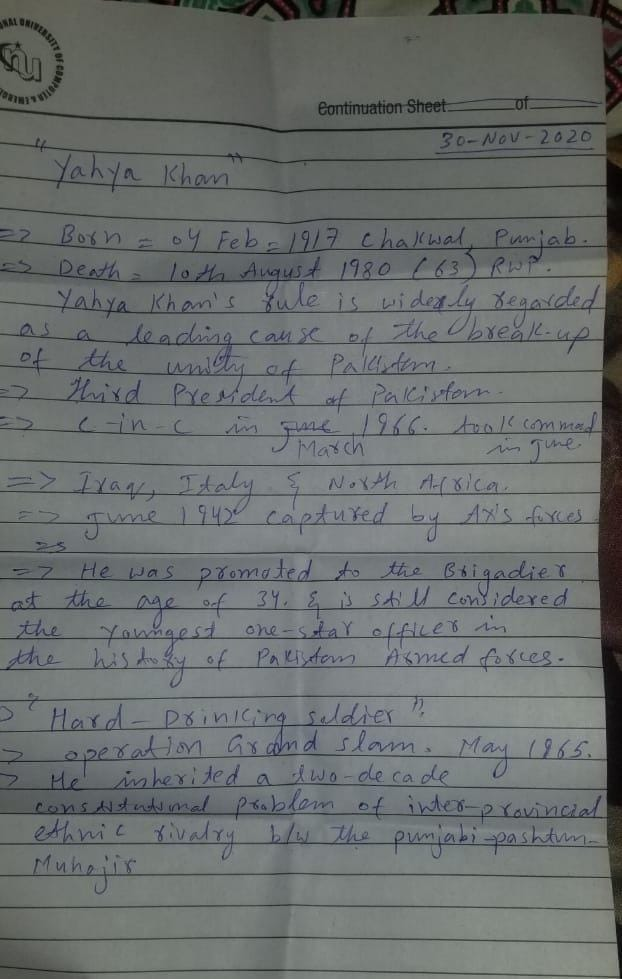 NAL UNIVERSITY OF COMPUTER & EMERG
nu
Continuation Sheet of
30-Nov-2020
"Yahya Khan"
=> Born = 04 Feb = 1917 Chakwal, Punjab.
=> Death = 10th August 1980 (63) RWP.
Yahya Khan's rule is widely regarded
as a leading cause of the break-up
of the unity of Pakistan.
=> Third President of Pakistan
=> C-in-C in June 1966. took commad
March in June.
=> Iraq, Italy & North Africa.
=> June 1942 captured by Axis forces
=> He was promoted to the Brigadier
at the age of 34. & is still considered
the youngest one-star officer in
the history of Pakistan Armed forces.
"Hard-Drinking soldier".
> operation Grand slam. May 1965.
> He inherited a two-decade
constitutional problem of inter-provincial
ethnic rivalry b/w the punjabi-pashtun-
Muhajir